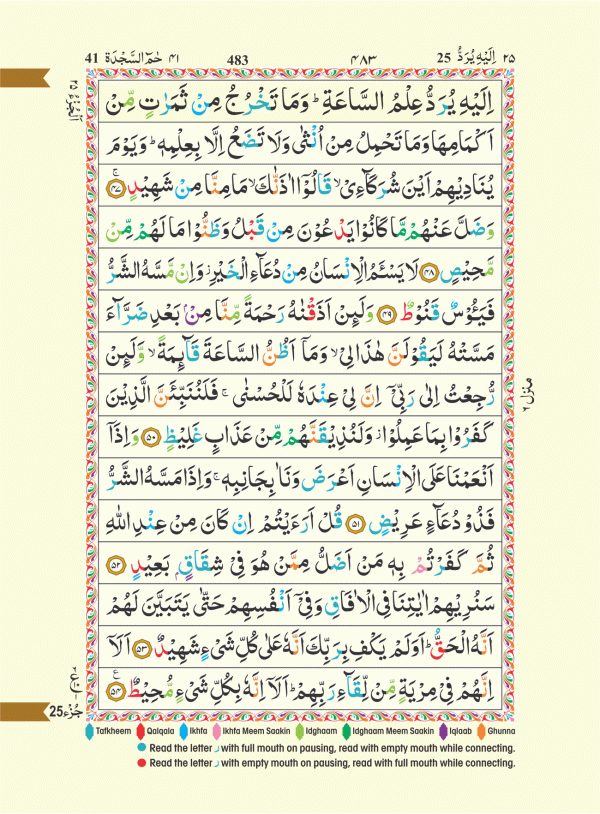 41 حٰمٓ السَّجْدَة ۴۱ 483 ۴۸۳ 25 اِلَيْهِ يُرَدُّ ۲۵
اِلَيْهِ يُرَدُّ عِلْمُ السَّاعَةِ ؕ وَمَا تَخْرُجُ مِنْ ثَمَرٰتٍ مِّنْ
اَكْمَامِهَا وَمَا تَحْمِلُ مِنْ اُنْثٰى وَلَا تَضَعُ اِلَّا بِعِلْمِهٖ ؕ وَيَوْمَ
يُنَادِيْهِمْ اَيْنَ شُرَكَآءِىْ ۙ قَالُوْۤا اٰذَنّٰكَ ۙ مَا مِنَّا مِنْ شَهِيْدٍ ۚ ۴۷
وَضَلَّ عَنْهُمْ مَّا كَانُوْا يَدْعُوْنَ مِنْ قَبْلُ وَظَنُّوْا مَا لَهُمْ مِّنْ
مَّحِيْصٍ ۴۸ لَا يَسْـَٔمُ الْاِنْسَانُ مِنْ دُعَآءِ الْخَيْرِ ؗ وَاِنْ مَّسَّهُ الشَّرُّ
فَيَـُٔوْسٌ قَنُوْطٌ ۴۹ وَلَىِٕنْ اَذَقْنٰهُ رَحْمَةً مِّنَّا مِنْۢ بَعْدِ ضَرَّآءَ
مَسَّتْهُ لَيَقُوْلَنَّ هٰذَا لِىْ ۙ وَمَاۤ اَظُنُّ السَّاعَةَ قَآىِٕمَةً ۙ وَّلَىِٕنْ
رُّجِعْتُ اِلٰى رَبِّىْۤ اِنَّ لِىْ عِنْدَهٗ لَلْحُسْنٰى ۚ فَلَنُنَبِّئَنَّ الَّذِيْنَ
كَفَرُوْا بِمَا عَمِلُوْا ؗ وَلَنُذِيْقَنَّهُمْ مِّنْ عَذَابٍ غَلِيْظٍ ۵۰ وَاِذَاۤ
اَنْعَمْنَا عَلَى الْاِنْسَانِ اَعْرَضَ وَنَاٰ بِجَانِبِهٖ ۚ وَاِذَا مَسَّهُ الشَّرُّ
فَذُوْ دُعَآءٍ عَرِيْضٍ ۵۱ قُلْ اَرَءَيْتُمْ اِنْ كَانَ مِنْ عِنْدِ اللّٰهِ
ثُمَّ كَفَرْتُمْ بِهٖ مَنْ اَضَلُّ مِمَّنْ هُوَ فِىْ شِقَاقٍۭ بَعِيْدٍ ۵۲
سَنُرِيْهِمْ اٰيٰتِنَا فِى الْاٰفَاقِ وَفِىْۤ اَنْفُسِهِمْ حَتّٰى يَتَبَيَّنَ لَهُمْ
اَنَّهُ الْحَقُّ ؕ اَوَلَمْ يَكْفِ بِرَبِّكَ اَنَّهٗ عَلٰى كُلِّ شَىْءٍ شَهِيْدٌ ۵۳ اَلَاۤ
اِنَّهُمْ فِىْ مِرْيَةٍ مِّنْ لِّقَآءِ رَبِّهِمْ ؕ اَلَاۤ اِنَّهٗ بِكُلِّ شَىْءٍ مُّحِيْطٌ ۵۴
منزل ۶
25 جُزْء
Tafkheem Qalqala Ikhfa Ikhfa Meem Saakin Idghaam Idghaam Meem Saakin Iqlaab Ghunna
Read the letter ر with full mouth on pausing, read with empty mouth while connecting.
Read the letter ر with empty mouth on pausing, read with full mouth while connecting.